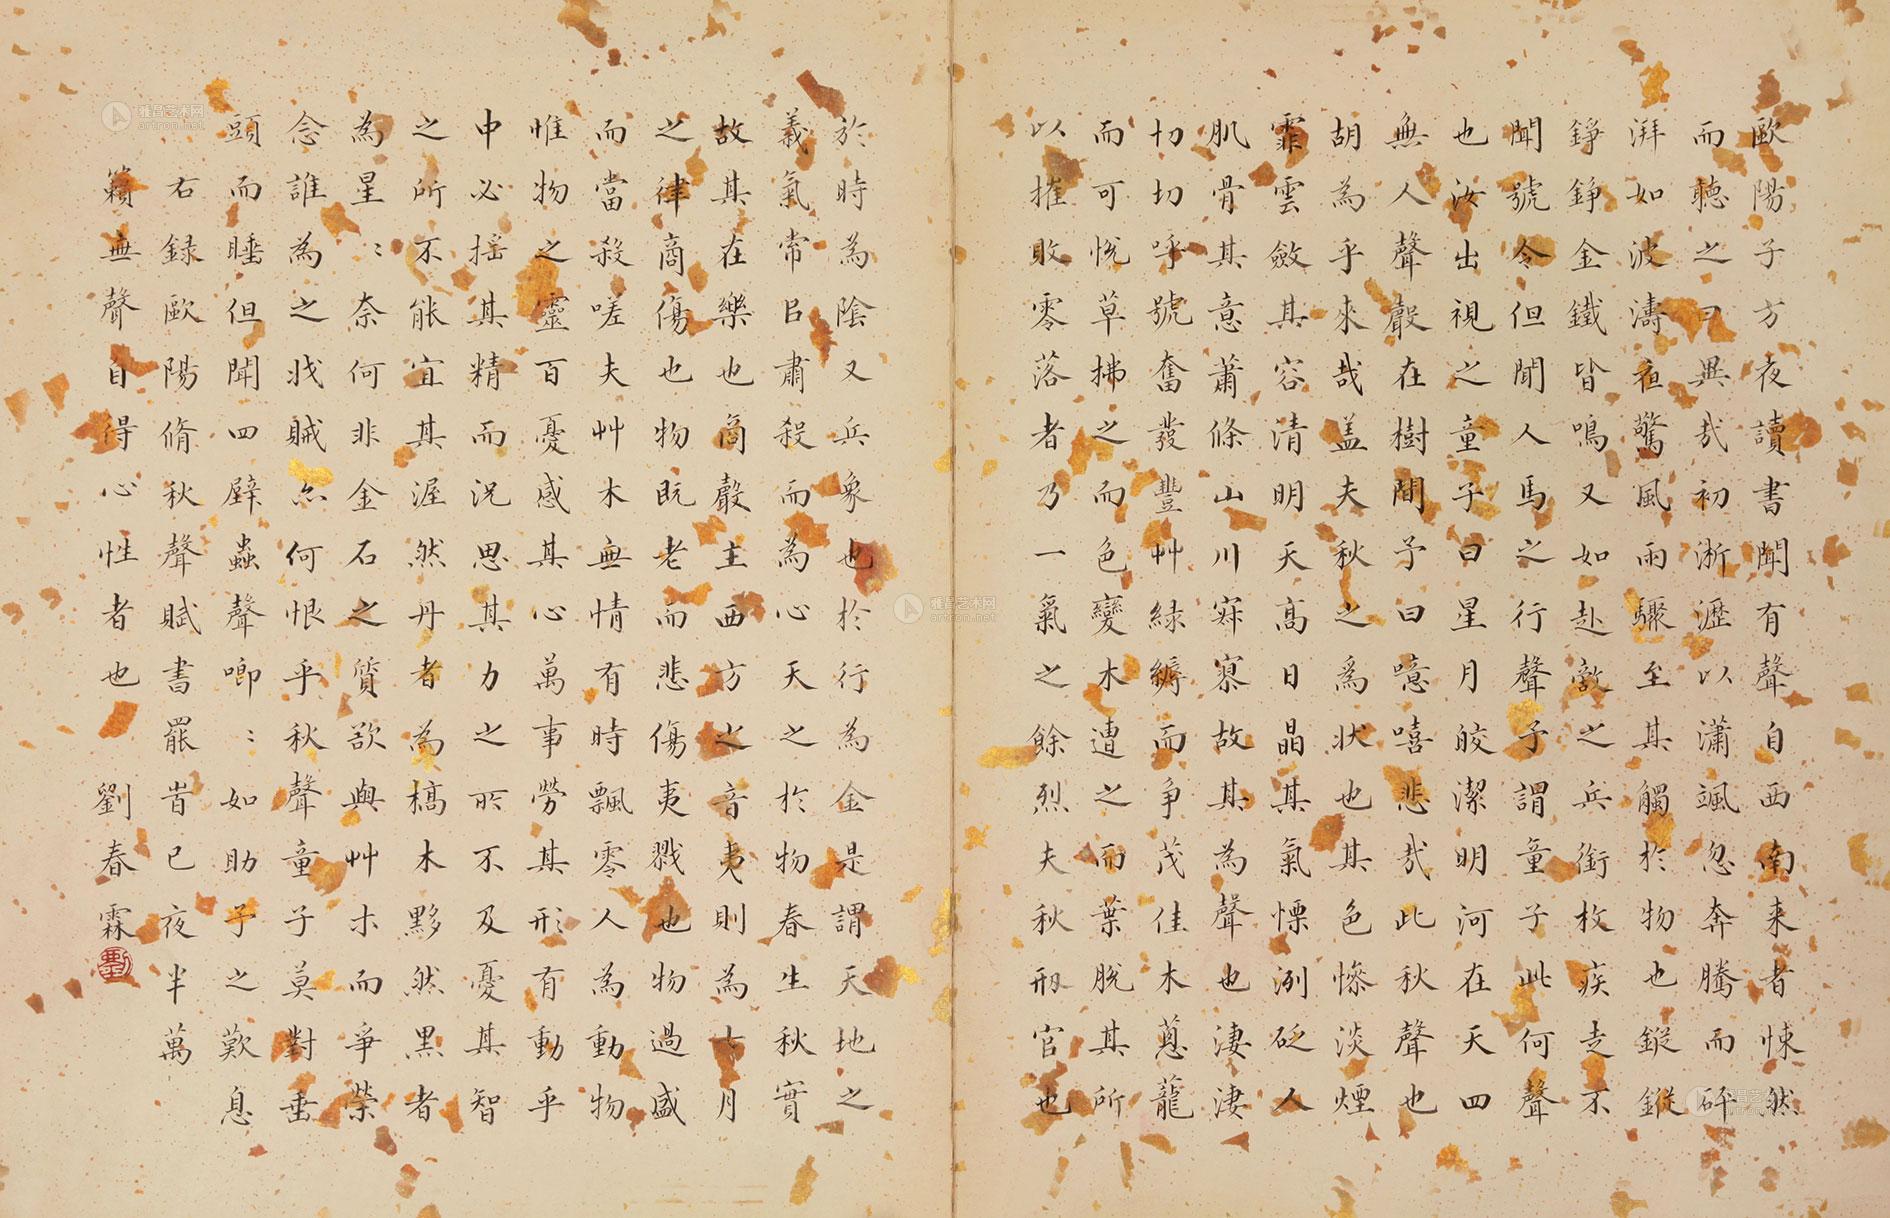 歐陽子方夜讀書聞有聲自西南来者悚然
而聽之曰異哉初淅瀝以瀟颯忽奔騰而砰
湃如波濤夜驚風雨驟至其觸於物也鏦鏦
錚錚金鐵皆鳴又如赴敵之兵銜枚疾走不
聞號令但聞人馬之行聲予謂童子此何聲
也汝出視之童子曰星月皎潔明河在天四
無人聲聲在樹間予曰噫嘻悲哉此秋聲也
胡為乎來哉盖夫秋之爲状也其色慘淡煙
霏雲斂其容清明天高日晶其氣慄洌砭人
肌骨其意蕭條山川寂寞故其為聲也淒淒
切切呼號奮發豐艸緑縟而争茂佳木蔥蘢
而可悦草拂之而色變木遭之而葉脱其所
以摧敗零落者乃一氣之餘烈夫秋刑官也
於時為陰又兵象也於行為金是謂天地之
義氣常㠯肅殺而為心天之於物春生秋實
故其在樂也商聲主西方之音夷則為七月
之律商傷也物既老而悲傷夷戮也物過盛
而當殺嗟夫艸木無情有時飄零人為動物
惟物之靈百憂感其心萬事勞其形有動乎
中必搖其精而況思其力之所不及憂其智
之所不能宜其渥然丹者為槁木黟然黑者
為星〻奈何非金石之質欲與艸木而爭榮
念誰為之戕賊亦何恨乎秋聲童子莫對垂
頭而睡但聞四壁蟲聲唧〻如助予之歎息
右録歐陽脩秋聲賦書罷旹已夜半萬
籟無聲自得心性者也 劉春霖
劉
雅昌艺术网
artron.net
雅昌艺术网
artron.net
雅昌艺术网
artron.net